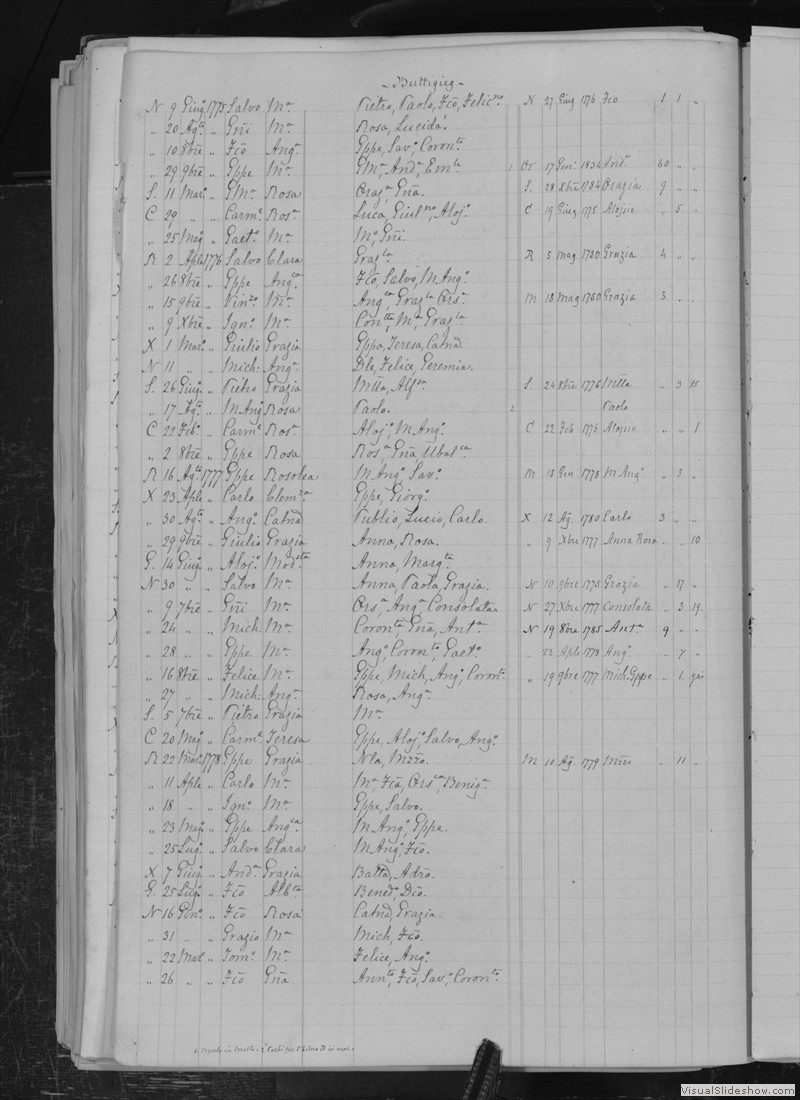 Buttigieg
N 9 Giug. 1775 Salvo Ma Pietro, Paolo, Fco, Felicno N 27 Giug 1776 Fco 1 1 "
" 20 Agto " Gni Ma Rosa, Lucida.
" 10 8bre " Fco Anga Gppe, Savo, Coronta
" 29 9bre " Gppe Ma Gma, Anda, Emla 1 Or 17 Gen. 1836 Anda 60 " "
S. 11 Mar. " Gma Rosa Orsa, Gna. S. 28 Xbre 1784 Grazia 9 " "
C 29 " " Carme Rosa Luca, Giulno, Alojo C 19 Giug 1775 Alojsio " 5 "
" 25 Mag " Gaeto Ma Mo, Gni.
R 2 Aple 1776 Salvo Clara Grazla. R 5 mag 1780 Grazia 4 " "
" 26 8bre " Gppe Angca Fco, Salvo, M Ango
" 15 9bre " Vinzo Ma Angca, Grazla, Orsa M 18 mag 1780 Grazia 3 " "
" 9 Xbre " Igno Ma Contta, Mla, Grazla
X 1 Mar. " Giulio Grazia Gppa, Teresa, Catna
N 11 " " Mich. Anga Dle, Felice, Geremia.
S. 26 Giug. " Pietro Grazia Mtta, Alfso. S. 24 8bre 1776 Mtta " 3 15
" 17 Agto " M Ang Rosa Paolo. 2 Paolo
C 22 Feb. " Carme Rosa Alojo, M Ango C 22 Feb 1776 Alojsio " " 1
" 2 8bre " Gppe Rosa Rosa, Gna, Ubalca
R 16 Agto 1777 Gppe Rosolea M Ango, Savo. M 18 Gen 1778 M Ango " 3 "
X 23 Aple " Carlo Clemza Gppe, Giorgo
" 30 Agto " Ango Catna Publio, Lucio, Carlo. X 12 Ag. 1780 Carlo 3 " "
" 29 9bre " Giulio Grazia Anna, Rosa. " 9 Xbre 1777 Anna Rosa " " 10
G. 14 Giug. " Alojo Modsta Anna, Margta
N 30 " " Salvo Ma Anna, Paola, Grazia. N 10 9bre 1778 Grazia " 17 "
" 9 7bre " Gni Ma Orsa, Anga, Consolata N 27 Xbre 1777 Consolata " 3 19
" 24 " " Mich. Ma Coronta, Gna, Anta N 19 8bre 1785 Anta 9 " "
" 28 " " Gppe Ma Ango, Coronto, Gaeto " 22 Aple 1778 Ango " 7 "
" 16 8bre " Felice Ma Gppe, Mich, Ango, Coronto " 19 9bre 1777 Mich. Gppe " 1 gni
" 27 " " Mich. Anga Rosa, Anga
S. 5 7bre " Pietro Grazia Ma
C 20 Mag. " Carme Teresa Gppe, Alojo, Salvo, Ango
R 22 Mar. 1778 Gppe Grazia Nla, Mzzo. M 10 Ag. 1779 Mzzo " 11 "
" 11 Aple " Carlo Ma Ma, Fca, Orsca, Beniga
" 18 " " Igno Ma Gppe, Salvo.
" 23 Mag. " Gppe Angca M Ango, Gppe.
" 25 Lug. " Salvo Clara M Ango, Fco.
X 7 Giug. " Anda Grazia Batta, Adro.
G. 25 Lug. " Fco Albta Bened, Dco.
N 16 Gen. " Fco Rosa Catna, Grazia.
" 31 " " Grazio Ma Mich, Fco.
" 22 Mar. " Tomo Ma Felice, Ango
" 26 " " Fco Gna Annta, Fco, Savo, Coronto
VisualSlideshow.com